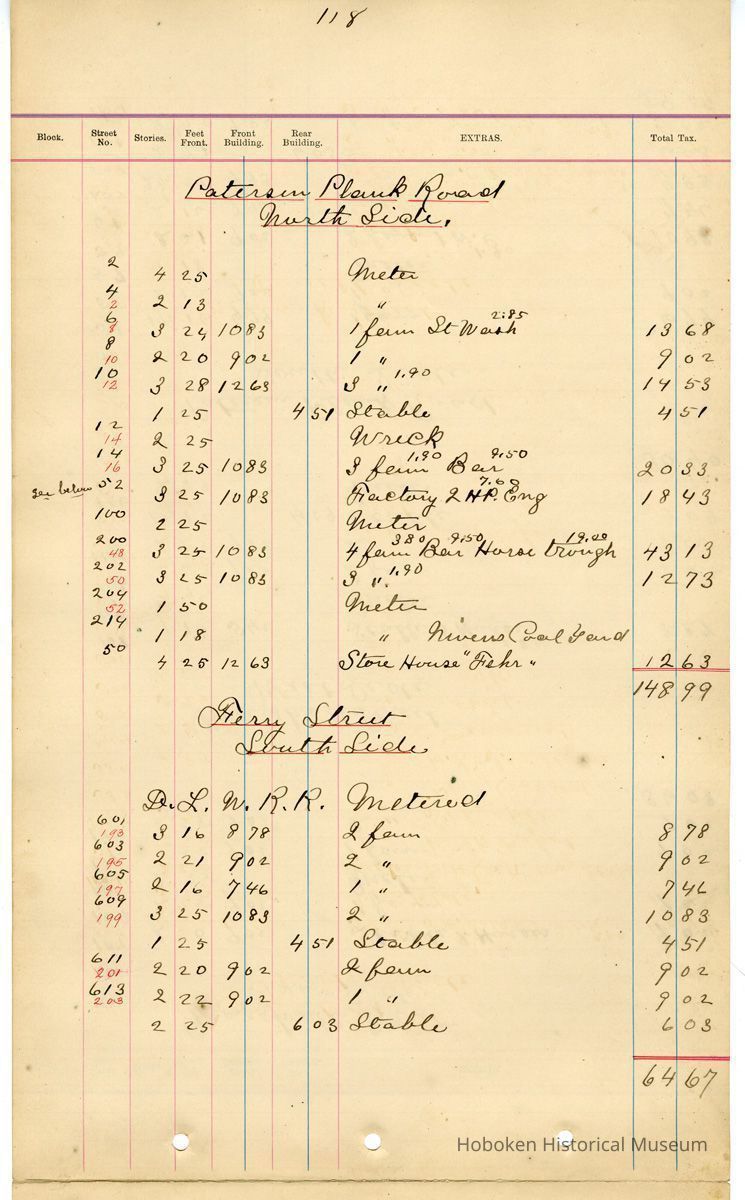 118
Block. Street No. Stories. Feet Front. Front Building. Rear Building. EXTRAS. Total Tax.
Paterson Plank Road
North Side.
2 4 25 Meter
4 2 2 13 "
6 8 3 24 10 83 1 fam St Wash 2.85 13 68
8 10 2 20 9 02 1 " 9 02
10 12 3 28 12 63 3 " 1.90 14 53
1 25 4 51 Stable 4 51
12 14 2 25 Wreck
14 16 3 25 10 83 3 fam 1.90 Bar 9.50 20 33
see below 52 3 25 10 83 Factory 2 HP. Eng 7.60 18 43
100 2 25 Meter
200 48 3 25 10 83 4 fam 3.80 Bar 9.50 Horse trough 19.00 43 13
202 50 3 25 10 83 3 " 1.90 12 73
204 52 1 50 Meter
214 1 18 " Nivens Coal Yard
50 4 25 12 63 Store House "Fehr" 12 63
148 99
Ferry Street
South Side
D. L. W. R. R. Metered
601 193 3 16 8 78 2 fam 8 78
603 195 2 21 9 02 2 " 9 02
605 197 2 16 7 46 1 " 7 46
609 199 3 25 10 83 2 " 10 83
1 25 4 51 Stable 4 51
611 201 2 20 9 02 2 fam 9 02
613 203 2 22 9 02 1 " 9 02
2 25 6 03 Stable 6 03
64 67
Hoboken Historical Museum